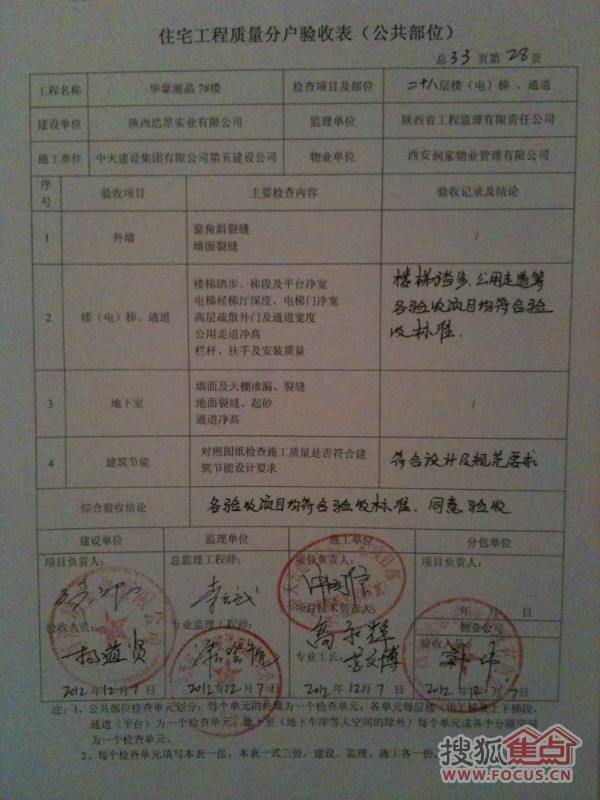 住宅工程质量分户验收表（公共部位）
总33页第28页
工程名称 华豪丽晶 7#楼 检查项目及部位 二十八层楼（电）梯、通道
建设单位 陕西浩星实业有限公司 监理单位 陕西省工程监理有限责任公司
施工单位 中天建设集团有限公司第五建设公司 物业单位 西安润家物业管理有限公司
序号 验收项目 主要检查内容 验收记录及结论
1 外墙 窗角斜裂缝 /
墙面裂缝
2 楼（电）梯、通道 楼梯踏步、梯段及平台净宽
电梯候梯厅深度、电梯门净宽
高层疏散外门及通道宽度
公用走道净高
栏杆、扶手及安装质量
楼梯踏步、公用走道等
各验收项目均符合验
收标准.
3 地下室 墙面及天棚渗漏、裂缝 /
地面裂缝、起砂
通道净高
4 建筑节能 对照图纸检查施工质量是否符合建
筑节能设计要求
符合设计及规范要求
综合验收结论 各验收项目均符合验收标准.同意验收
建设单位 监理单位 施工单位 分包单位
项目负责人： 总监理工程师： 项目负责人： 项目负责人：
项目技术负责人：
年 月 日
物业公司
验收人员： 专业监理工程师： 专业工长： 验收人员：
杨益贤
2012年12月7日 2012年12月7日 2012年12月7日 2012年12月7日
注：1、公共部位检查单元划分：每个单元的外墙为一个检查单元；各单元每层楼（电）梯及上下梯段、
通道（平台）为一个检查单元；地下室（地下车库等大空间的除外）每个单元或各个分隔空间
为一个检查单元。
2、每个检查单元填写本表一张，本表一式三份，建设、监理、施工各一份
搜狐焦点
WWW.FOCUS.CN